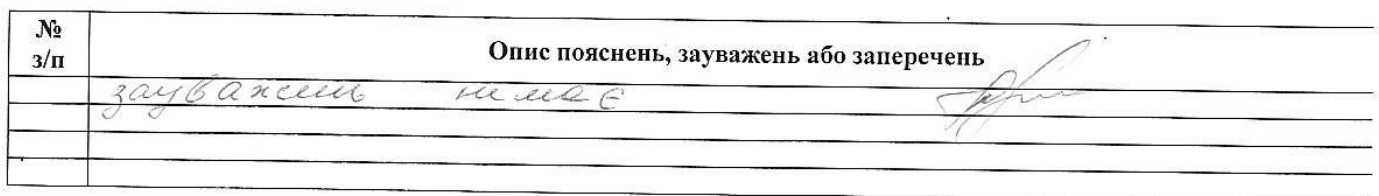 №
з/п
Опис пояснень, зауважень або заперечень
зауважень немає